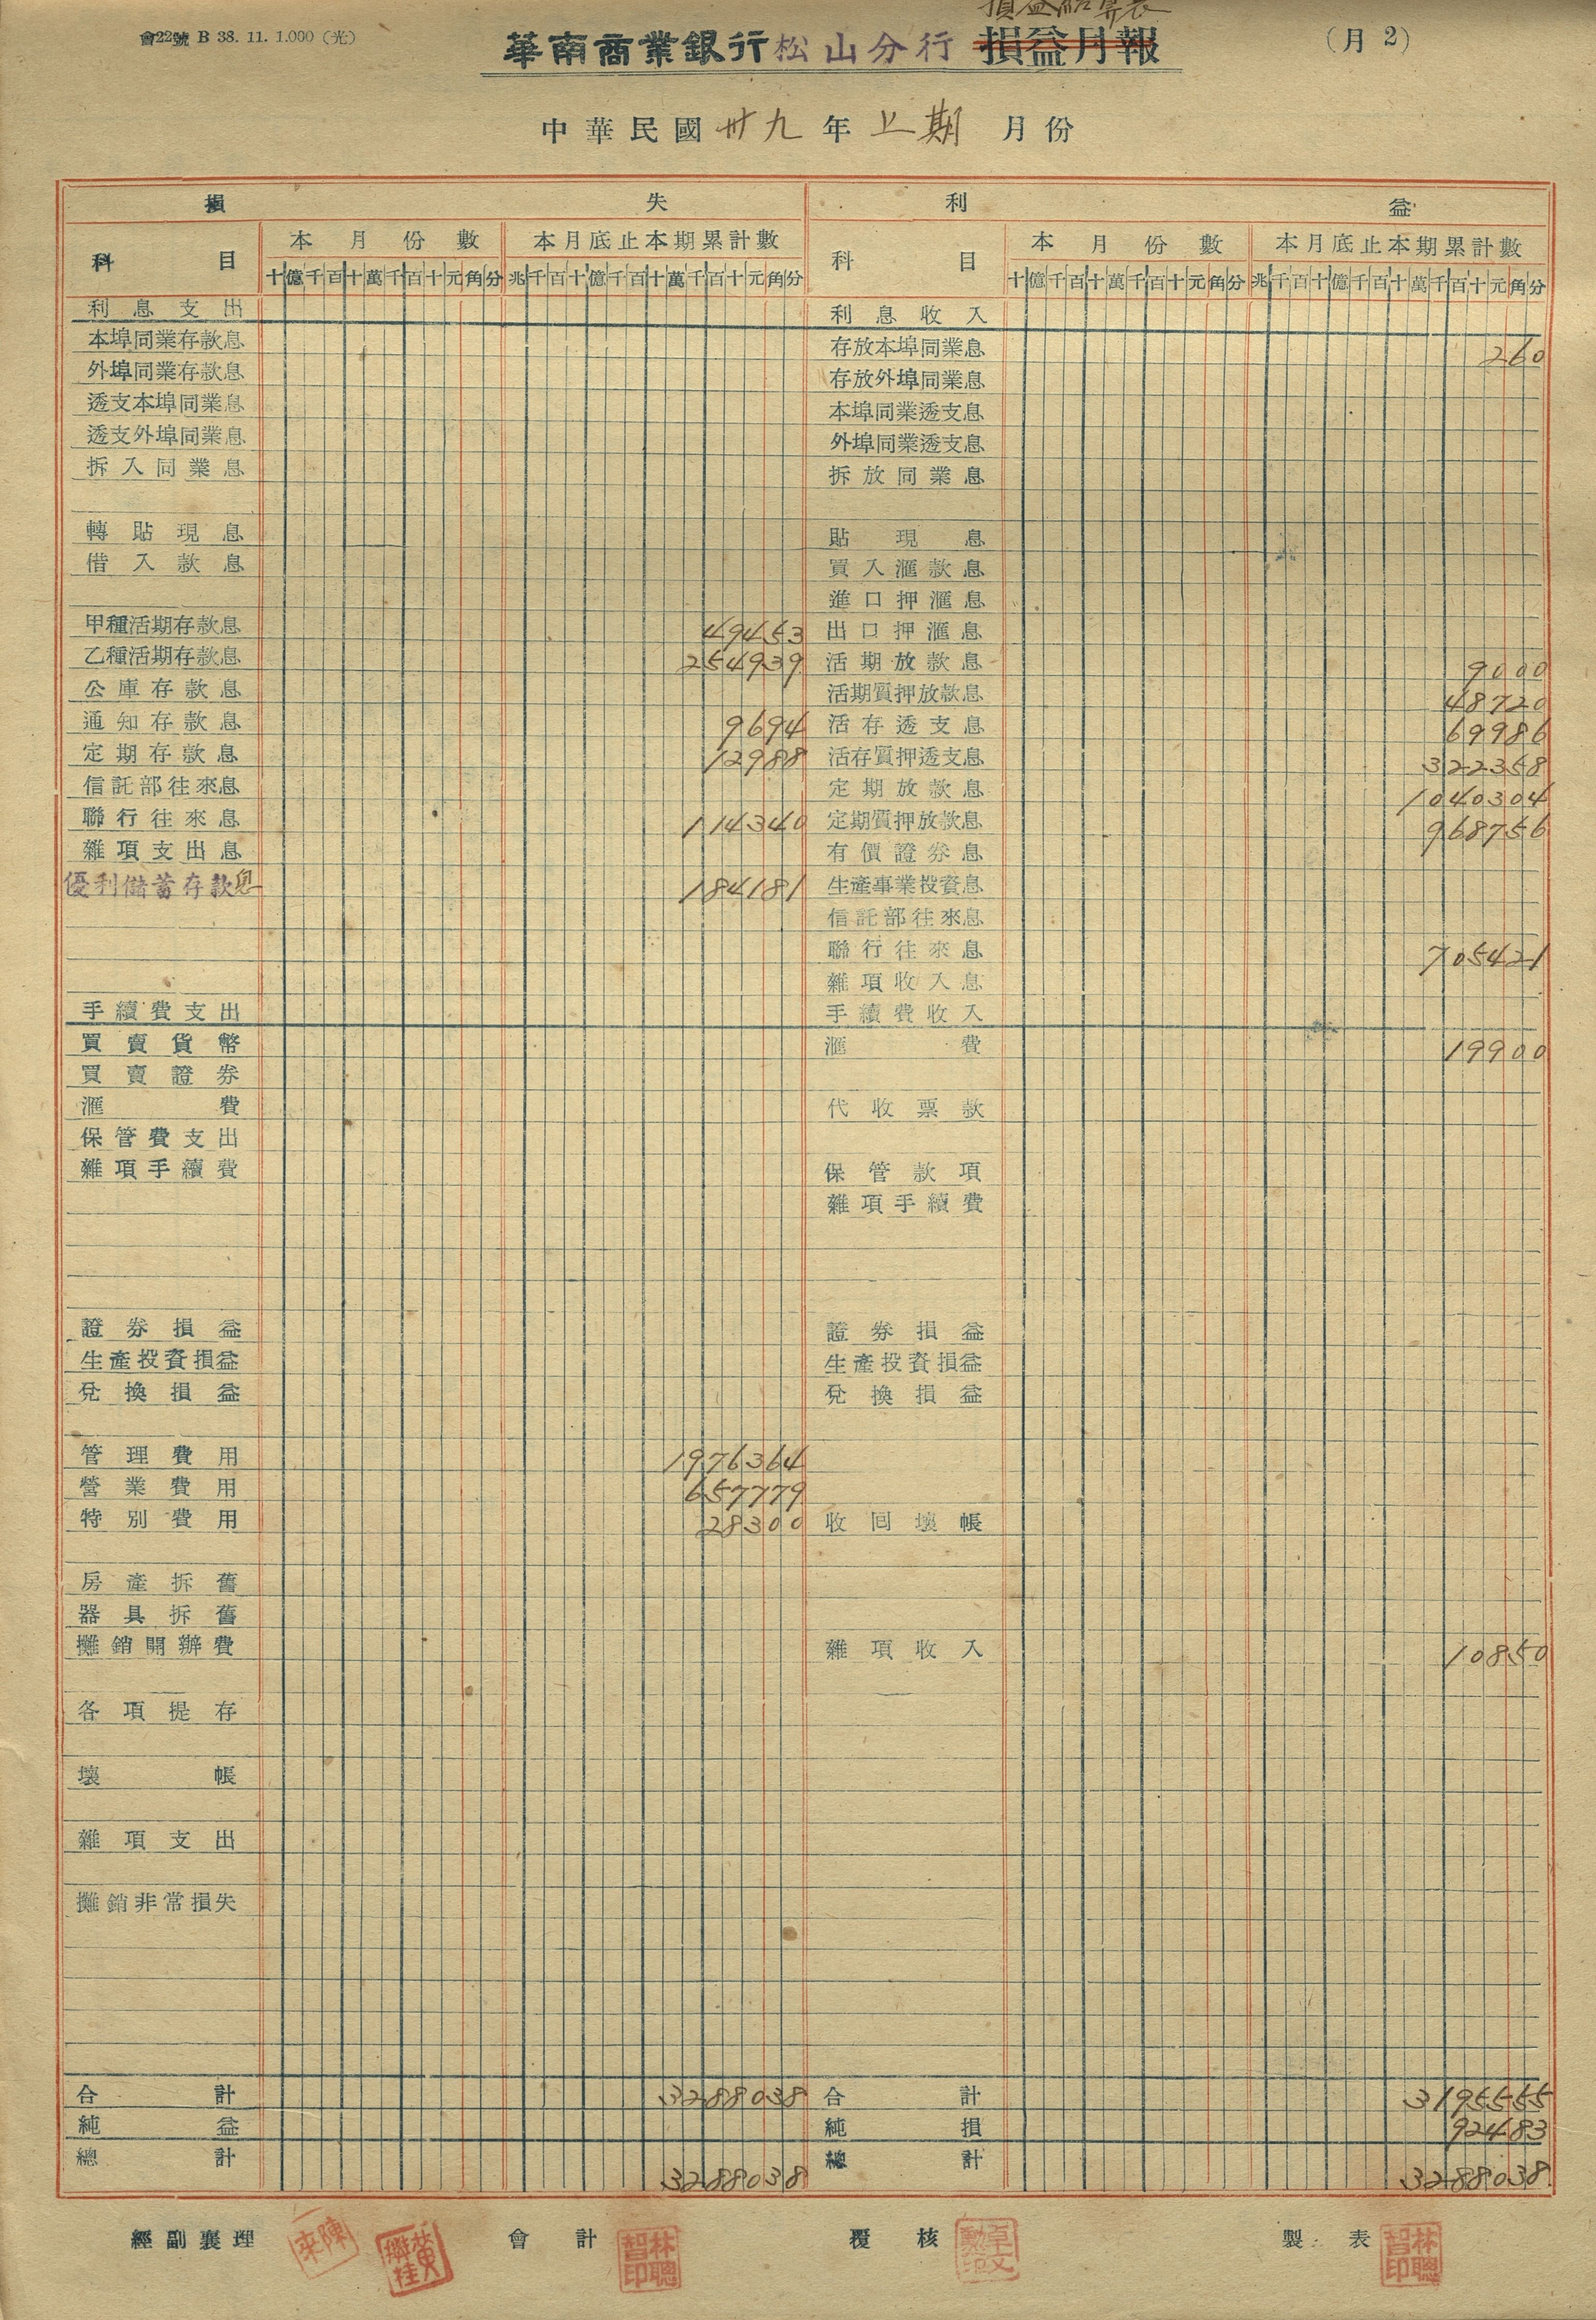 會22號 B 38. 11. 1.000 (光)
損益結算表
華南商業銀行松山分行 損益月報
(月 2)
中華民國 卅九 年 上期 月份
損 失 利 益
科 目 本月份數 本月底止本期累計數 科 目 本月份數 本月底止本期累計數
十億千百十萬千百十元角分 兆千百十億千百十萬千百十元角分 十億千百十萬千百十元角分 兆千百十億千百十萬千百十元角分
利息支出 利息收入
本埠同業存款息 存放本埠同業息 260
外埠同業存款息 存放外埠同業息
透支本埠同業息 本埠同業透支息
透支外埠同業息 外埠同業透支息
拆入同業息 拆放同業息
轉貼現息 貼現息
借入款息 買入滙款息
進口押滙息
甲種活期存款息 49453 出口押滙息
乙種活期存款息 254939 活期放款息 9000
公庫存款息 活期質押放款息 48720
通知存款息 9694 活存透支息 69986
定期存款息 12988 活存質押透支息 322358
信託部往來息 定期放款息 1040304
聯行往來息 114340 定期質押放款息 968756
雜項支出息 有價證券息
優利儲蓄存款息 184181 生產事業投資息
信託部往來息
聯行往來息 705421
雜項收入息
手續費支出 手續費收入
買賣貨幣 滙費 19900
買賣證券
滙費 代收票款
保管費支出
雜項手續費 保管款項
雜項手續費
證券損益 證券損益
生產投資損益 生產投資損益
兌換損益 兌換損益
管理費用 1976364
營業費用 657779
特別費用 28300 收回壞帳
房產拆舊
器具拆舊
攤銷開辦費 雜項收入 10850
各項提存
壞帳
雜項支出
攤銷非常損失
合計 3288038 合計 3195555
純益 純損 92483
總計 3288038 總計 3288038
經副襄理 陳来 黃聯桂 會計 林聰智印 覆核 製表 林聰智印